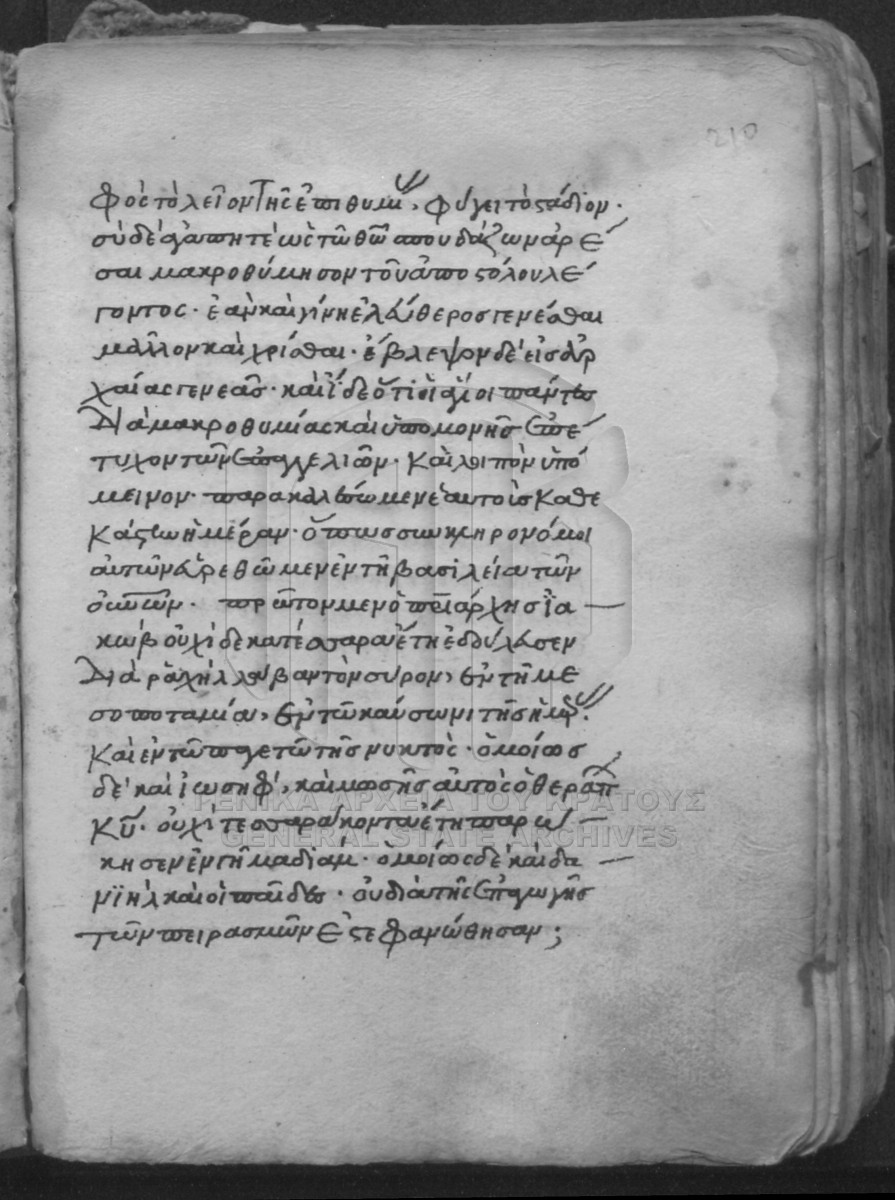 210
φος τὸ λεῖον τῆς ἐπιθυμί, φύγει τὸ στάδιον·
σὺ δὲ ἀγαπητὲ ὡς τῶ θῶ σπουδάζων ἀρέ
σαι μακροθύμησον τοῦ ἀποστόλου λέ
γοντος· ἐὰν καὶ γίνη ἐλεύθερος γενέσθαι
μᾶλλον καὶ χρίσθαι· ἔβλεψον δὲ εἰς ἀρ
χαίας γενεᾶς· καὶ ἴδε ὅτι οἱ ἅγιοι πάντες
διὰ μακροθυμίας καὶ ὑπομονῆς ἐπέ
τυχον τῶν ἐπαγγελιῶν· καὶ λοιπὸν ὑπό
μεινον· παρακαλέσωμεν ἑαυτοὶς καθε
κάστω ἡμέραν· ὅπως συγκληρονόμοι
αὐτῶν εὑρεθῶμεν ἐν τῆ βασιλεία τῶν
οὐνῶν· πρῶτον μεν ὁ πριάρχης ἰα
κὼβ οὐχὶ δεκατέσσαρα ἔτη ἐδούλευσεν
διὰ ραχὴλ λάβαν τὸν σύρον, ἐν τῆ με
σοποταμία, ἐν τῶ καύσωνι τῆς ἡμρ·
καὶ ἐν τῶ παγετῶ τῆς νυκτὸς· ὁμοίως
δὲ καὶ ἰωσηφ, καὶ μωσῆς αὐτὸς ὁ θεράπ
κυ· οὐχὶ τεσσαράκοντα ἔτη παρώ
κησεν ἐν γῆ μαδιάμ· ὁμοίως δὲ καὶ δα
νϊὴλ καὶ οἱ παῖδες· οὐ διὰ τῆς ἐπαγωγῆς
τῶν πειρασμῶν ἐστεφανώθησαν;
ΓΕΝΙΚΑ ΑΡΧΕΙΑ ΤΟΥ ΚΡΑΤΟΥΣ
GENERAL STATE ARCHIVES